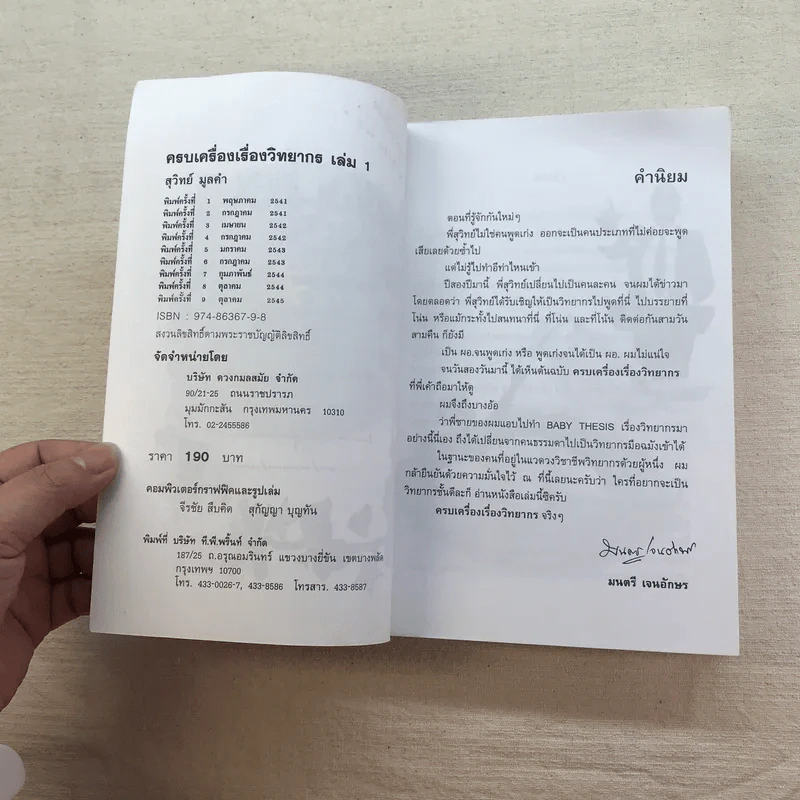 ครบเครื่องเรื่องวิทยากร เล่ม 1
สุวิทย์ มูลคำ
พิมพ์ครั้งที่ 1 พฤษภาคม 2541
พิมพ์ครั้งที่ 2 กรกฎาคม 2541
พิมพ์ครั้งที่ 3 เมษายน 2542
พิมพ์ครั้งที่ 4 กรกฎาคม 2542
พิมพ์ครั้งที่ 5 มกราคม 2543
พิมพ์ครั้งที่ 6 กรกฎาคม 2543
พิมพ์ครั้งที่ 7 กุมภาพันธ์ 2544
พิมพ์ครั้งที่ 8 ตุลาคม 2544
พิมพ์ครั้งที่ 9 ตุลาคม 2545
ISBN : 974-86367-9-8
สงวนลิขสิทธิ์ตามพระราชบัญญัติลิขสิทธิ์
จัดจำหน่ายโดย
บริษัท ดวงกมลสมัย จำกัด
90/21-25 ถนนราชปรารภ
มุมมักกะสัน กรุงเทพมหานคร 10310
โทร. 02-2455586
ราคา 190 บาท
คอมพิวเตอร์กราฟฟิคและรูปเล่ม
จีรชัย สืบคิด สุกัญญา บุญทัน
พิมพ์ที่ บริษัท ที.พี.พริ้นท์ จำกัด
187/25 ถ.อรุณอมรินทร์ แขวงบางยี่ขัน เขตบางพลัด
กรุงเทพฯ 10700
โทร. 433-0026-7, 433-8586 โทรสาร. 433-8587
คำนิยม
ตอนที่รู้จักกันใหม่ๆ
พี่สุวิทย์ไม่ใช่คนพูดเก่ง ออกจะเป็นคนประเภทที่ไม่ค่อยจะพูด
เสียเลยด้วยซ้ำไป
แต่ไม่รู้ไปทำอีท่าไหนเข้า
ปีสองปีมานี้ พี่สุวิทย์เปลี่ยนไปเป็นคนละคน จนผมได้ข่าวมา
โดยตลอดว่า พี่สุวิทย์ได้รับเชิญให้เป็นวิทยากรไปพูดที่นี่ ไปบรรยายที่
โน่น หรือแม้กระทั่งไปสนทนาที่นี่ ที่โน่น และที่โน้น ติดต่อกันสามวัน
สามคืน ก็ยังมี
เป็น ผอ.จนพูดเก่ง หรือ พูดเก่งจนได้เป็น ผอ. ผมไม่แน่ใจ
จนวันสองวันมานี้ ได้เห็นต้นฉบับ ครบเครื่องเรื่องวิทยากร
ที่พี่เค้าถือมาให้ดู
ผมจึงถึงบางอ้อ
ว่าพี่ชายของผมแอบไปทำ BABY THESIS เรื่องวิทยากรมา
อย่างนี้นี่เอง ถึงได้เปลี่ยนจากคนธรรมดาไปเป็นวิทยากรมือฉมังเข้าได้
ในฐานะของคนที่อยู่ในแวดวงวิชาชีพวิทยากรด้วยผู้หนึ่ง ผม
กล้ายืนยันด้วยความมั่นใจไว้ ณ ที่นี้เลยนะครับว่า ใครที่อยากจะเป็น
วิทยากรชั้นดีละก็ อ่านหนังสือเล่มนี้ซิครับ
ครบเครื่องเรื่องวิทยากร จริงๆ
มนตรี เจนอักษร
มนตรี เจนอักษร